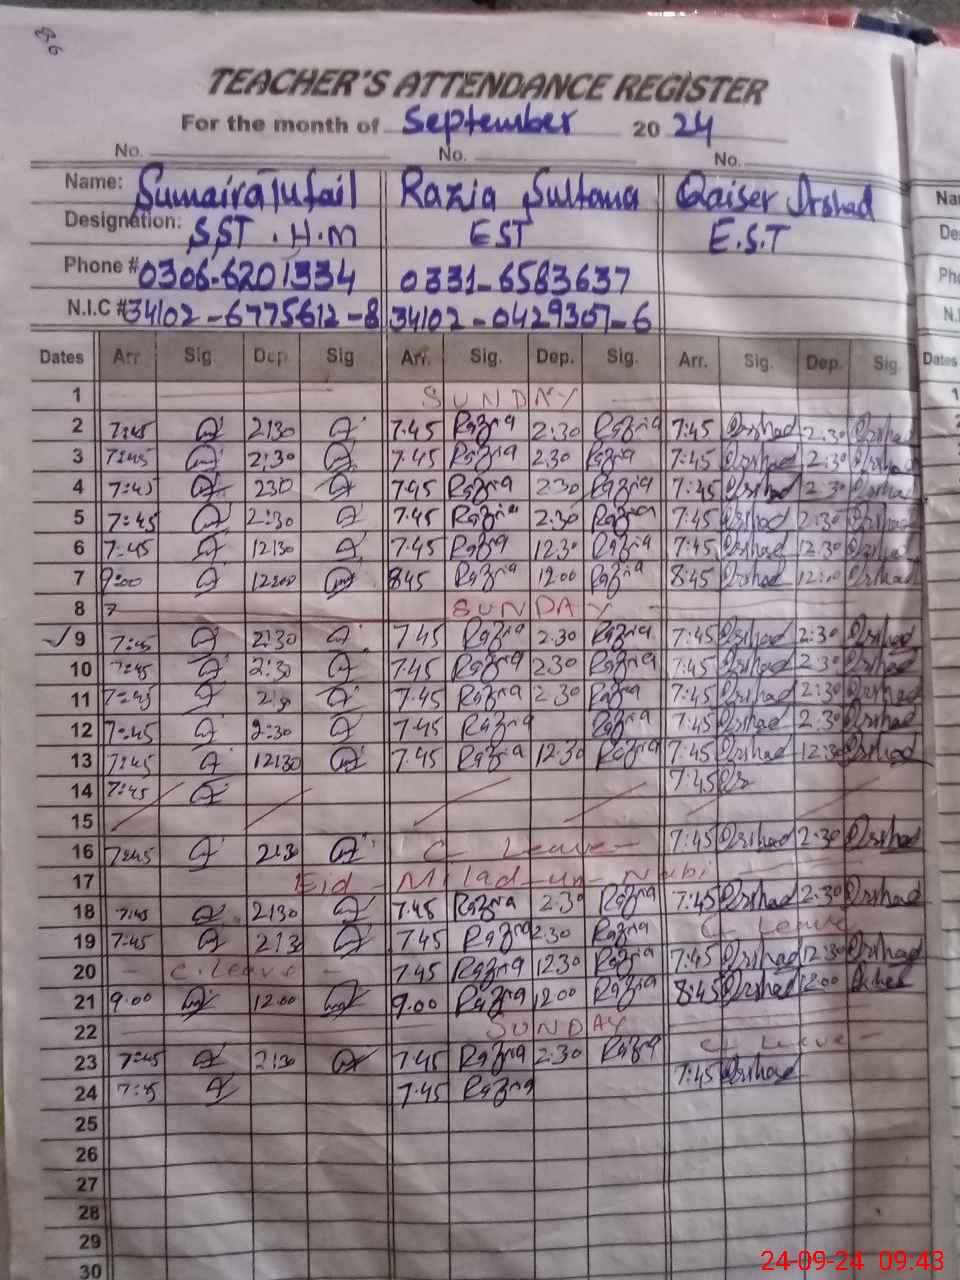 TEACHER'S ATTENDANCE REGISTER
For the month of September 20 24
No. No. No.
Name: Sumaira Tufail Razia Sultana Qaiser Arshad
Designation: SST . H.M EST E.S.T
Phone # 0306-6201334 0331-6583637
N.I.C # 34102-6775612-8 34102-0429307-6
Dates Arr. Sig Dep. Sig Arr. Sig. Dep. Sig. Arr. Sig. Dep. Sig
1 SUNDAY
2 7:45 2:30 7.45 Razia 2:30 Razia 7:45 Arshad 2:30 Arshad
3 7:45 2:30 7.45 Razia 2.30 Razia 7:45 Arshad 2:30 Arshad
4 7:45 230 7.45 Razia 2.30 Razia 7:45 Arshad 2:30 Arshad
5 7:45 2:30 7.45 Razia 2.30 Razia 7:45 Arshad 2:30 Arshad
6 7:45 12:30 7.45 Razia 12.30 Razia 7:45 Arshad 12:30 Arshad
7 9:00 12:00 8.45 Razia 12.00 Razia 8:45 Arshad 12:00 Arshad
8 SUNDAY
9 7:45 2:30 7.45 Razia 2.30 Razia 7:45 Arshad 2:30 Arshad
10 7:45 2:30 7.45 Razia 2.30 Razia 7:45 Arshad 2:30 Arshad
11 7:45 7.45 Razia 2.30 Razia 7:45 Arshad 2:30 Arshad
12 7:45 2:30 7.45 Razia Razia 7:45 Arshad 2:30 Arshad
13 7:45 12:30 7.45 Razia 12.30 Razia 7:45 Arshad 12:30 Arshad
14 7:45 7:45
15
16 7:45 2:30 C Leave 7:45 Arshad 2:30 Arshad
17 Eid - Milad-un-Nabi
18 7:45 2:30 7.45 Razia 2.30 Razia 7:45 Arshad 2:30 Arshad
19 7:45 2:3 7.45 Razia 2.30 Razia C Leave
20 C. Leave 7.45 Razia 12.30 Razia 7:45 Arshad 12:30 Arshad
21 9.00 12.00 9.00 Razia 12.00 Razia 8:45 Arshad 12:00 Arshad
22 SUNDAY
23 7:45 2:30 7.45 Razia 2.30 Razia C Leave
24 7:45 7.45 Razia 7:45 Arshad
25
26
27
28
29
30
24-09-24 09:43